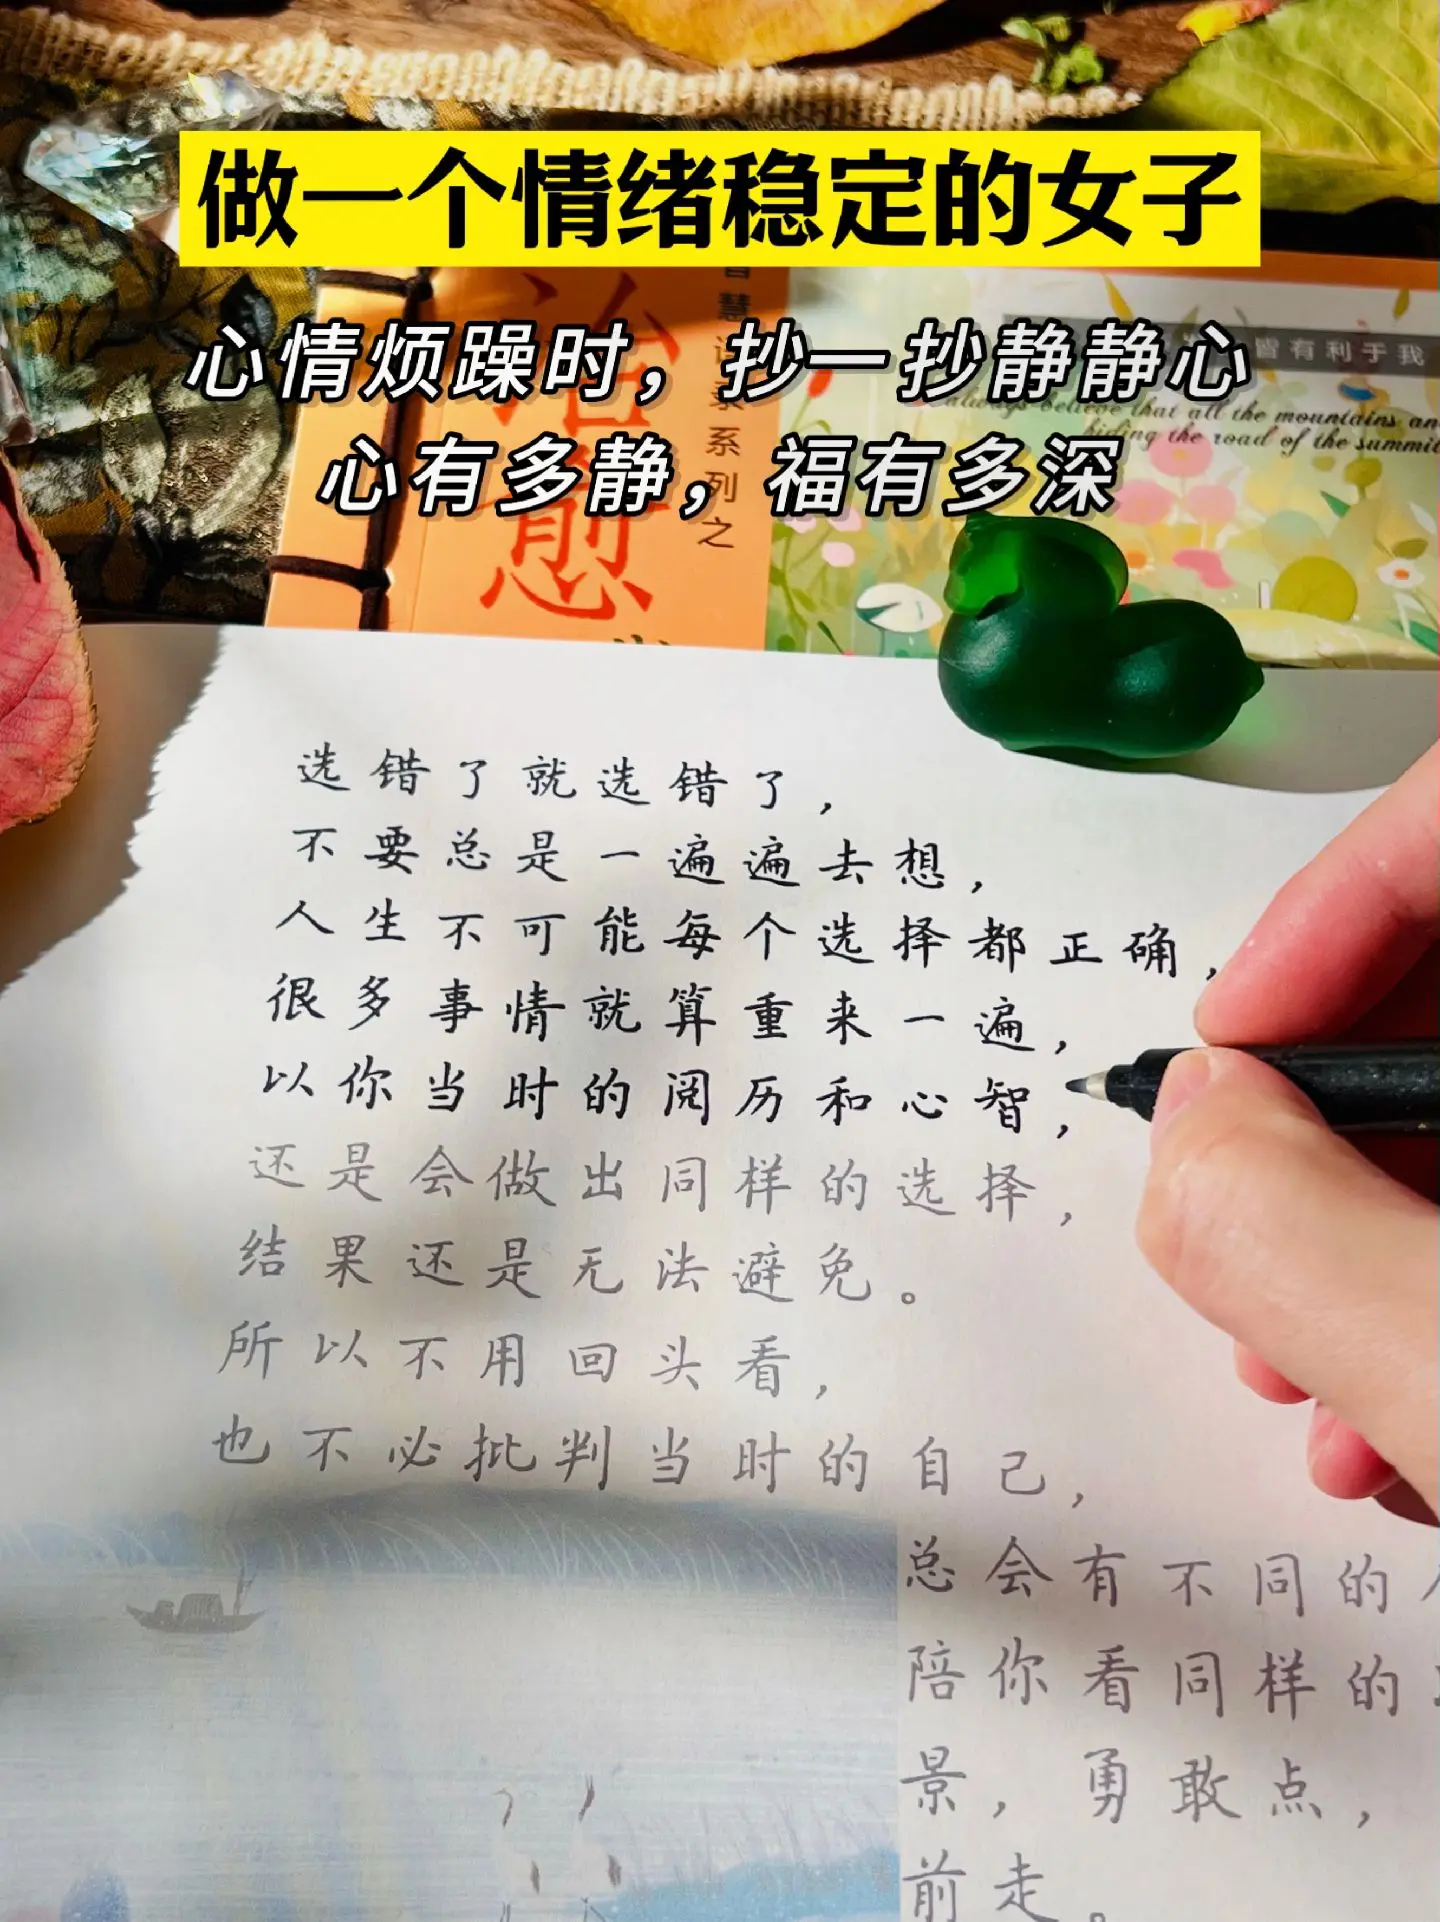 做一个情绪稳定的女子
心情烦躁时，抄一抄静静心
心有多静，福有多深
治愈
系列之
皆有利于我
always believe that all the mountains an
hiding the road of the summit
选错了就选错了，
不要总是一遍遍去想，
人生不可能每个选择都正确，
很多事情就算重来一遍，
以你当时的阅历和心智，
还是会做出同样的选择，
结果还是无法避免。
所以不用回头看，
也不必批判当时的自己，
总会有不同的
陪你看同样的
景，勇敢点，
前走。